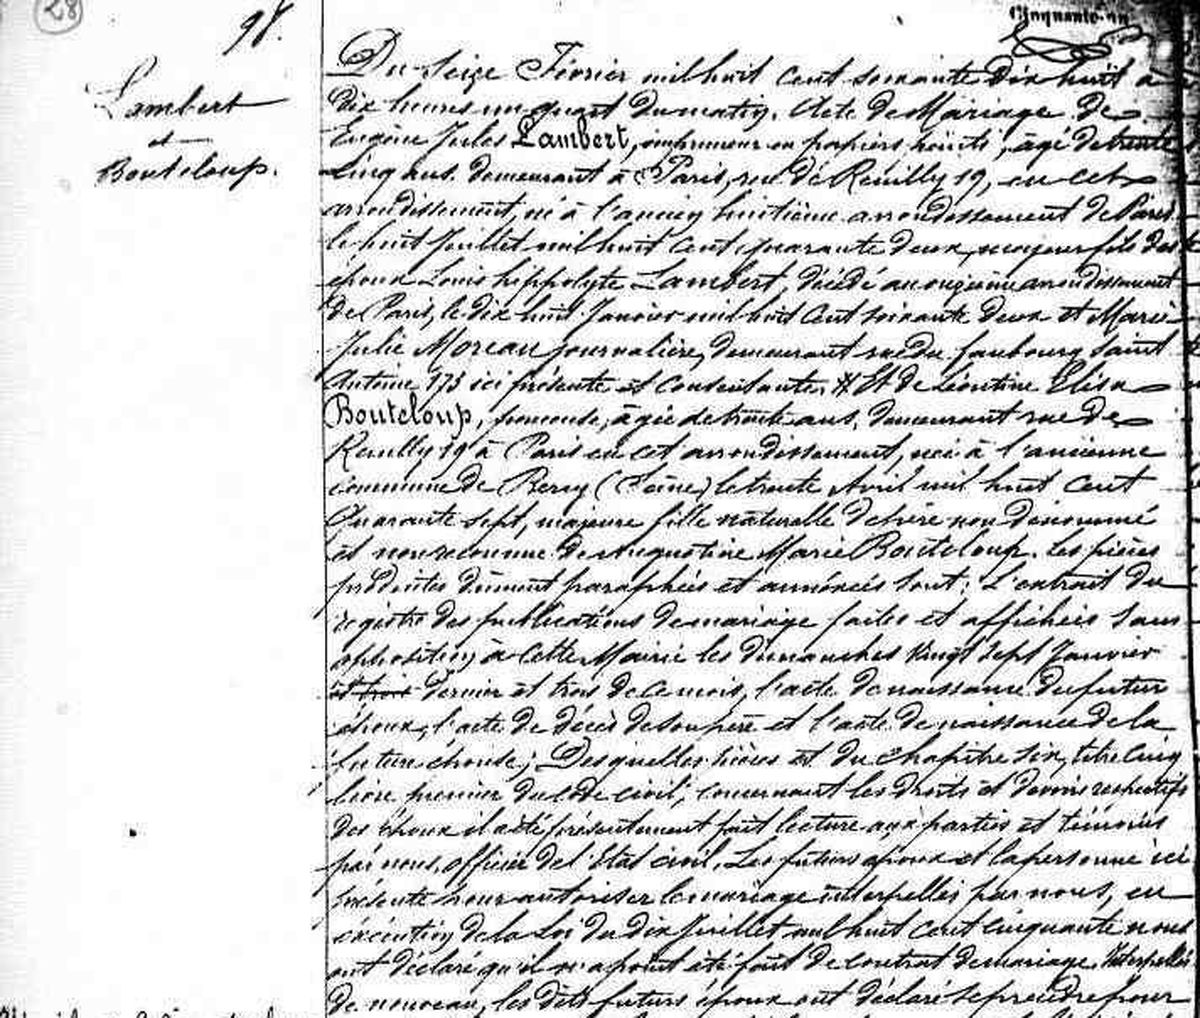 28
98.
Cinquante-un
Lambert
et
Bouteloup.
Du seize Février mil huit cent soixante dix huit à
dix heures un quart du matin. Acte de Mariage de
Eugène Jules Lambert, imprimeur en papiers peints, âgé de trente
cinq ans, demeurant à Paris, rue de Reuilly 19, en cet
arrondissement, né à l'ancien huitième arrondissement de Paris
le huit Juillet mil huit cent quarante deux, majeur fils des
époux Louis hippolyte Lambert, décédé au onzième arrondissement
de Paris, le dix huit Janvier mil huit cent soixante deux et Marie
Julie Moreau journalière, demeurant rue du faubourg Saint
Antoine 173 ici présente et consentante, # Et de Léontine Elisa
Bouteloup, ponceuse, âgée de trente ans, demeurant rue de
Reuilly 19 à Paris en cet arrondissement, née à l'ancienne
commune de Bercy (Seine) le trente Avril mil huit cent
Quarante sept, majeure fille naturelle de père non dénommé
et non reconnue de Augustine Marie Bouteloup. Les pièces
produites dûment paraphées et annexées sont: L'extrait du
registre des publications de mariage faites et affichées sans
opposition à cette Mairie les dimanches vingt sept Janvier
et trois dernier et trois de ce mois, l'acte de naissance du futur
époux, l'acte de décès de son père et l'acte de naissance de la
future épouse; Desquelles pièces et du chapitre six, titre cinq
livre premier du code civil, concernant les droits et devoirs respectifs
des époux il a été présentement fait lecture aux parties et témoins
par nous, officier de l'Etat civil. Les futurs époux et la personne ici
présente pour autoriser le mariage interpellés par nous, en
exécution de la Loi du dix Juillet mil huit cent cinquante nous
ont déclaré qu'il n'a point été fait de contrat de mariage. Interpellés
de nouveau, les dits futurs époux ont déclaré se prendre pour